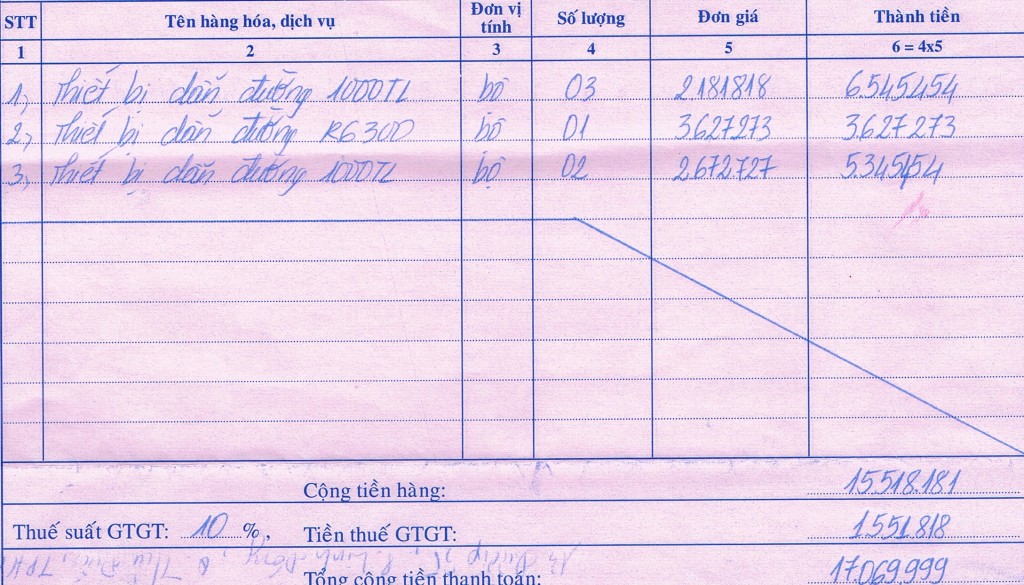 STT Tên hàng hóa, dịch vụ Đơn vị tính Số lượng Đơn giá Thành tiền
1 2 3 4 5 6 = 4x5
1, Thiết bị dẫn đường 1000TL bộ 03 2181818 6.545454
2, Thiết bị dẫn đường R6300 bộ 01 3627273 3.627273
3, Thiết bị dẫn đường 1000TL bộ 02 2672727 5.345454
Cộng tiền hàng: 15.518.181
Thuế suất GTGT: 10 %, Tiền thuế GTGT: 1.551.818
Tổng cộng tiền thanh toán: 17.069.999